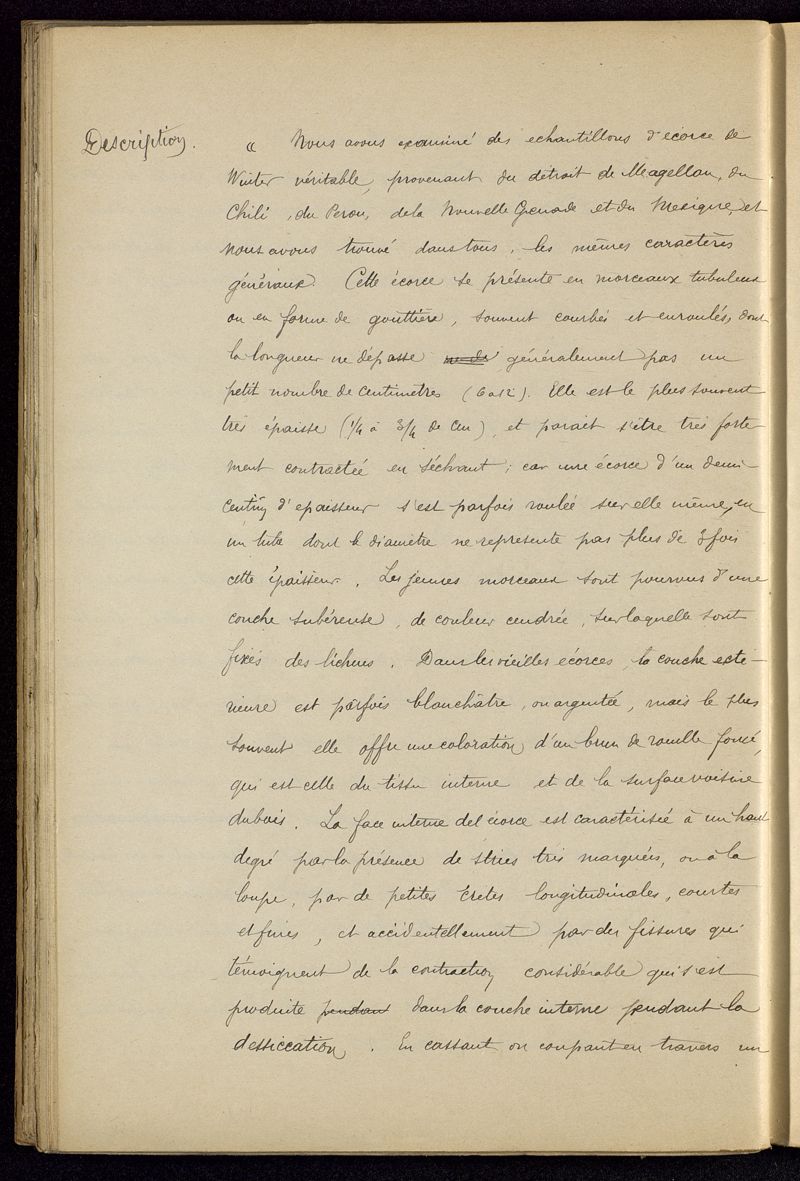 Description.
" Nous avons examiné des echantillons d'écorce de
Winter véritable, provenant du détroit de Magellan, du
Chili, du Perou, de la Nouvelle Grenade et du Mexique, et
nous avons trouvé dans tous, les mêmes caractères
généraux. Cette écorce se présente en morceaux tubuleux
ou en forme de gouttière, souvent courbés et enroulés, dont
la longueur ne dépasse généralement pas un
petit nombre de centimetres (6 à 12). Elle est le plus souvent
très épaisse (1/4 à 3/4 de Cm), et parait s'être très forte
ment contractée en séchant; car une écorce d'un demi-
centim d'epaisseur s'est parfois roulée sur elle même, en
un tube dont le diamètre ne represente pas plus de 3 fois
cette épaisseur. Les jeunes morceaux sont pourvus d'une
couche subéreuse, de couleur cendrée, sur laquelle sont
fixés des lichens. Dans les vieilles écorces, la couche exté-
rieure est parfois blanchâtre, ou argentée, mais le plus
souvent elle offre une coloration d'un brun de rouille foncé,
qui est celle du tissu interne et de la surface voisine
du bois. La face interne de l'écorce est caractérisée à un haut
degré par la présence de stries très marquées, ou à la
loupe, par de petites crêtes longitudinales, courtes
et fines, et accidentellement par des fissures qui
témoignent de la contraction considérable qui s'est
produite pendant dans la couche interne pendant la
dessiccation. En cassant ou coupant en travers un